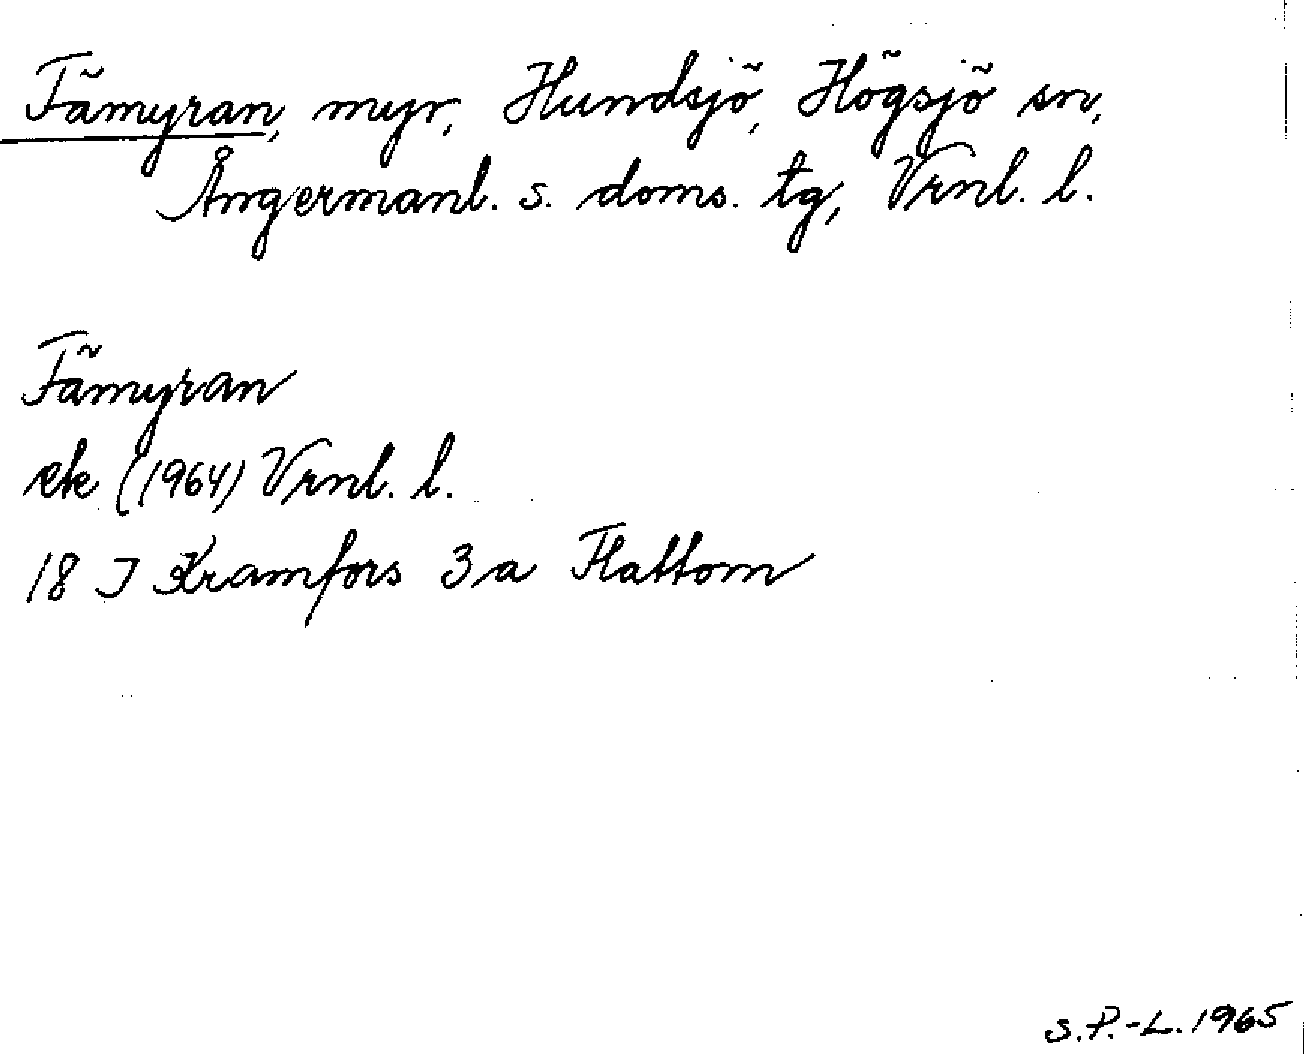 Fämyran, myr, Hundsjö, Högsjö sn,
Ångermanl. s. doms. tg, Vrnl. l.
Fämyran
ek (1964) Vrnl. l.
18 J Kramfors 3 a Flattom
S.P.-L. 1965